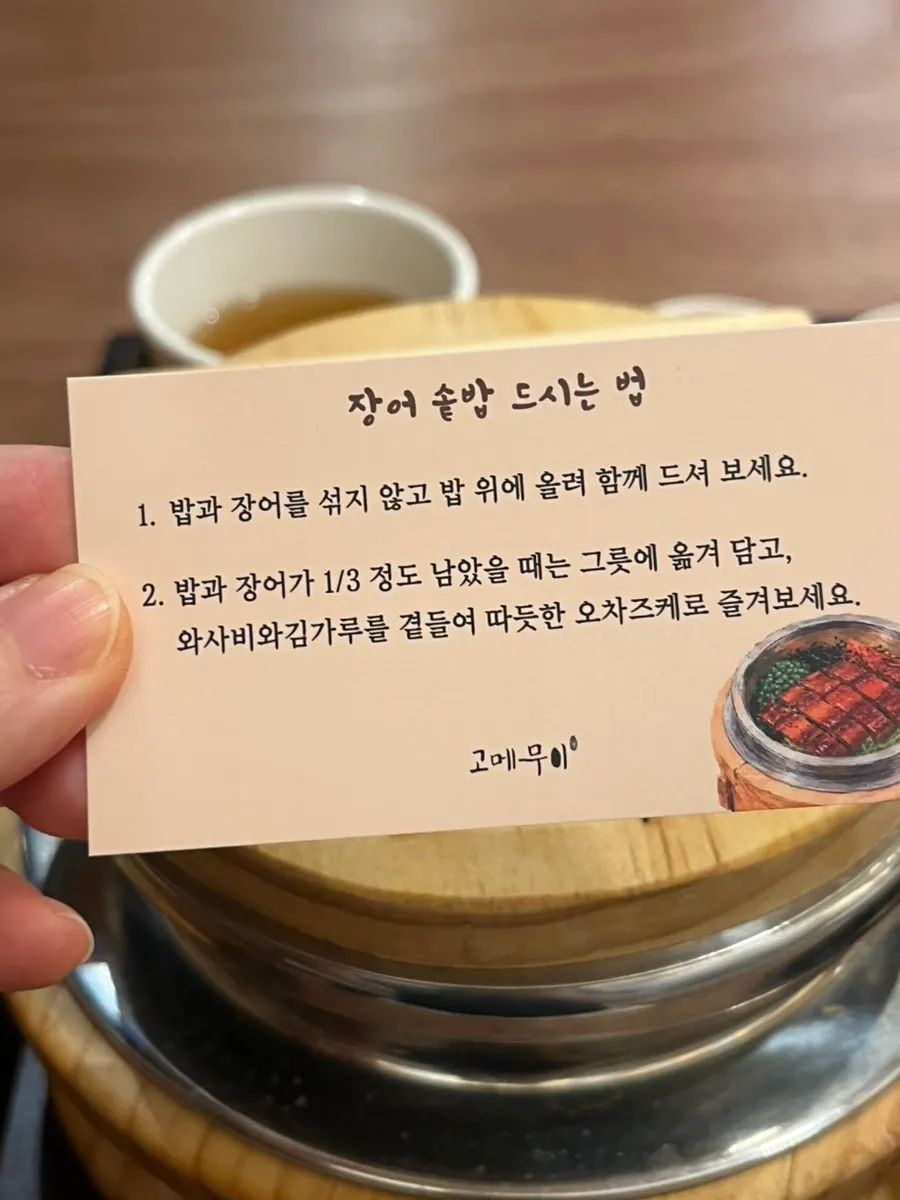 장어 솥밥 드시는 법
1. 밥과 장어를 섞지 않고 밥 위에 올려 함께 드셔 보세요.
2. 밥과 장어가 1/3 정도 남았을 때는 그릇에 옮겨 담고,
와사비와김가루를 곁들여 따듯한 오차즈케로 즐겨보세요.
고메무이